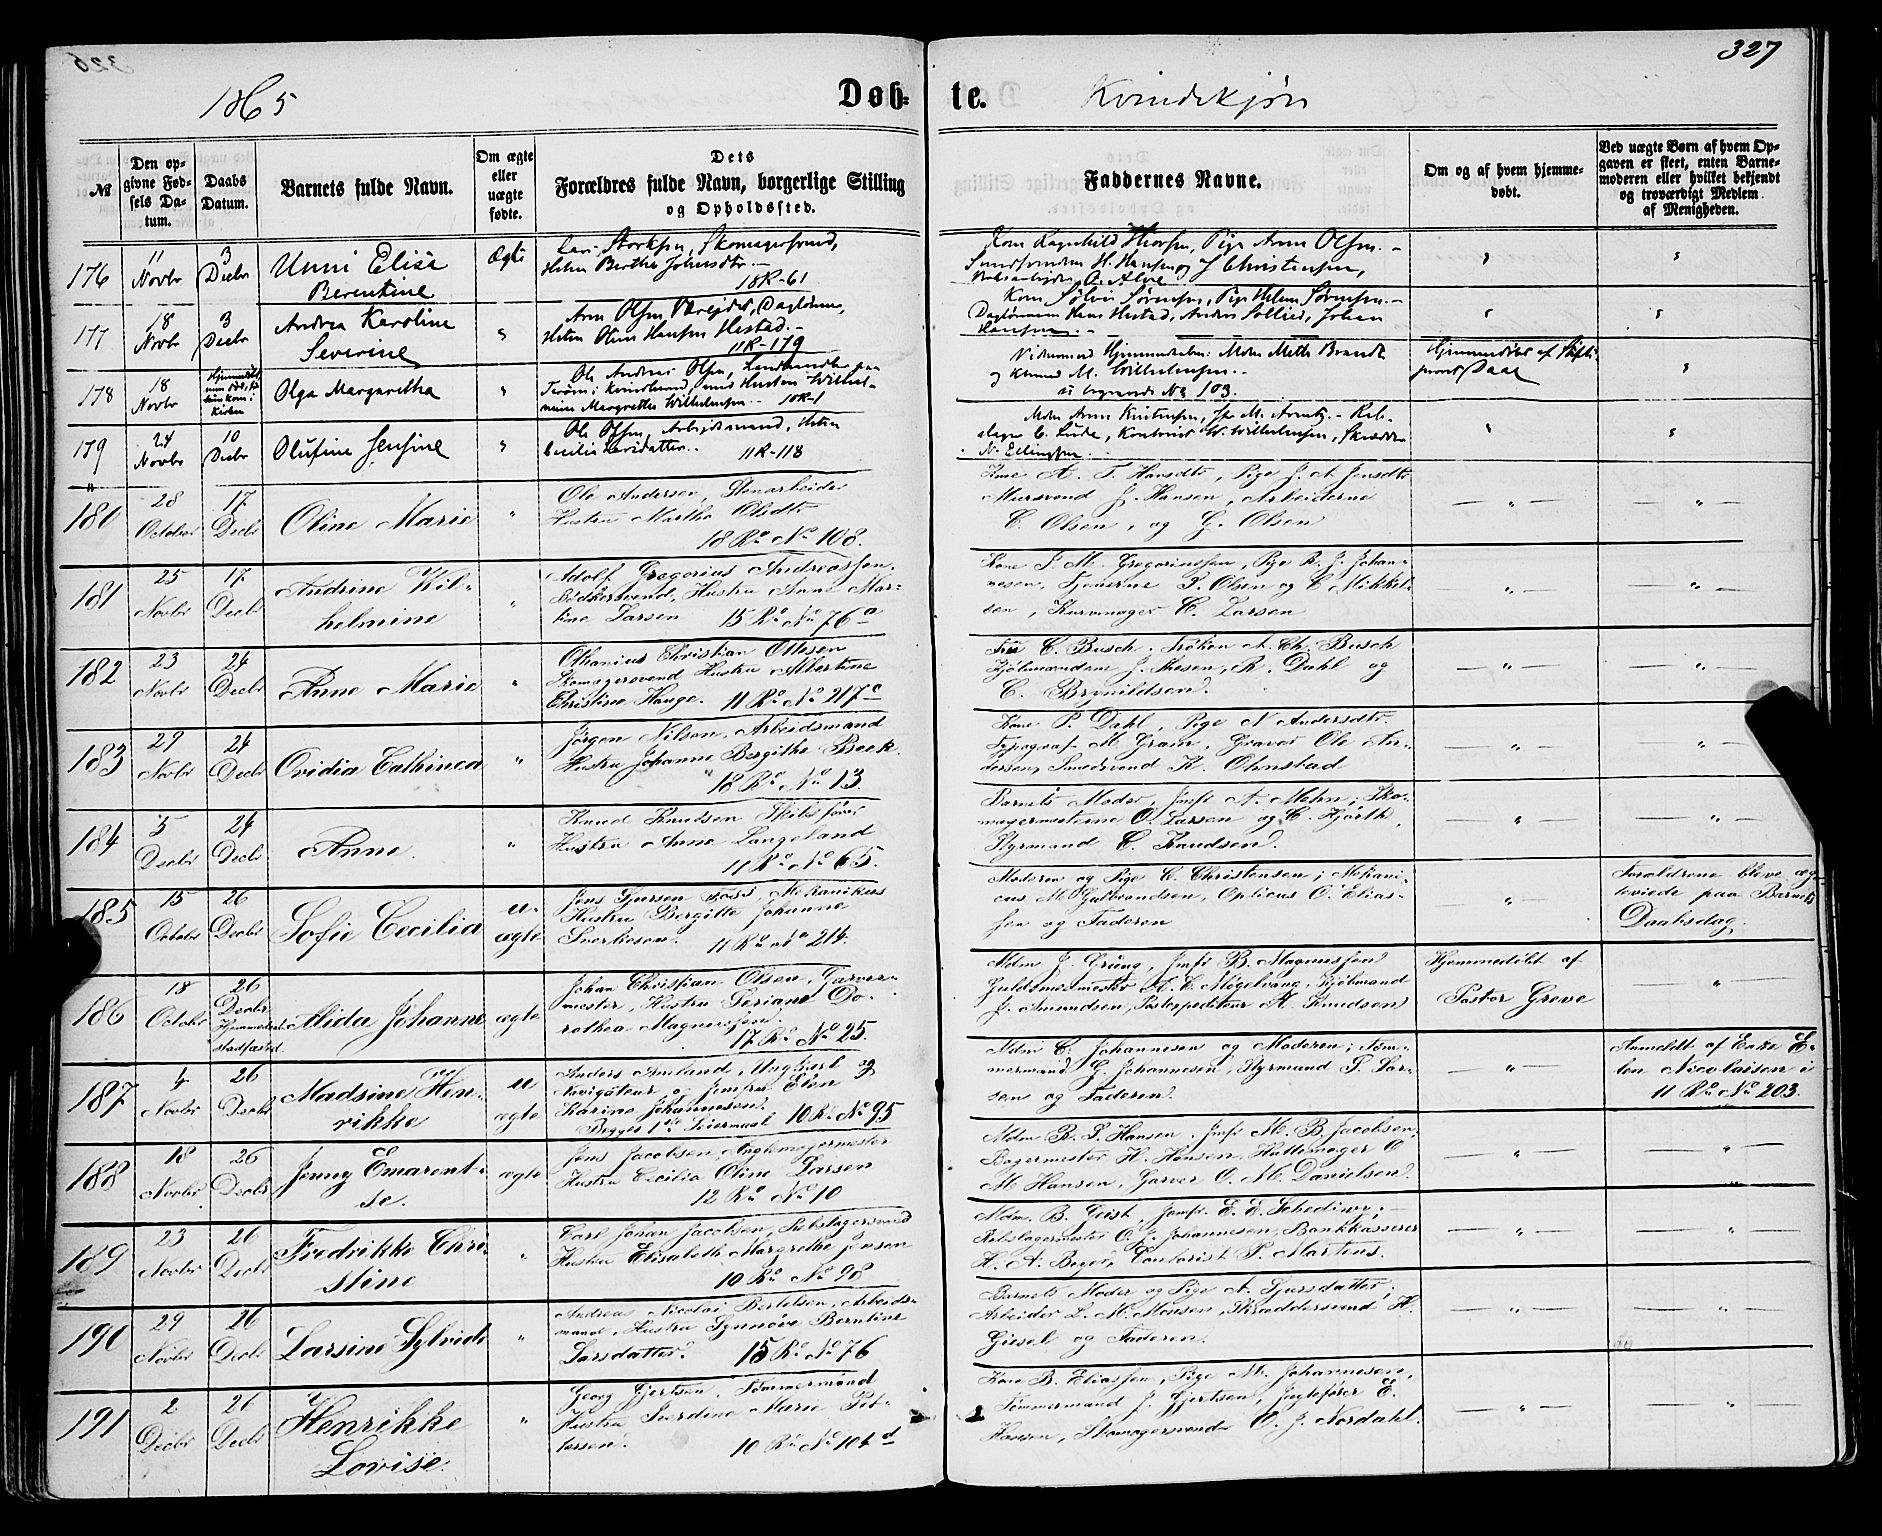 327
1865
Døb-te.
Kvindekjøn
No
Den opgivne Fødsels Datum.
Daabs Datum.
Barnets fulde Navn.
Om ægte eller uægte fødte.
Dets Forældres fulde Navn, borgerlige Stilling og Opholdssted.
Faddernes Navne.
Om og af hvem hjemmedøbt.
Ved uægte Børn af hvem Opgaven er skeet, enten Barnemoderen eller hvilket bekjendt og troværdigt Medlem af Menigheden.
176
11 Novbr
3 Decbr
Unni Elise
Berentine
Ægte
Skomagersvend,
18R-61
Pige Anna Olsen.-
H. Hansen og J Christensen,
177
18 Novbr
3 Decbr
Andrea Karoline
Severine
Hansen Hestad.-
11R-179
Hans Hestad, Johan
Hansen.-
178
18 Novbr
Olga Margaretha
Ole Andreas Olsen,
Margrethe Wilhelmsen.- 10R-1
M. Wilhelmsen.-
No 103.
Hjemmedøbt af
Daae
179
24 Novbr
10 Decbr
Olufine Jensine
Ole Olsen, Arbejdsmand,
Cecilia Larsdatter.. 11R-118
W. Wilhelmsen,
N. Ellingsen.
180
28 October
17 Decbr
Oline Marie
"
Ole Andersen, Stenarbeider
Hustru Martha Olsdtr
18 Ro No 108.
Kone A. T. Hansdtr, Pige J. A. Jensdtr
Mursvend J. Hansen, Arbeiderne
C. Olsen, og G. Olsen
181
25 Novbr
17 Decbr
Andrine Wil-
helmine
"
Adolf Gregorius Andreassen.
Bødkersvend, Hustru Anne Mar-
tine Larsen 15 Ro No 76 a
Kone J M. Gregoriussen, Pige R. J. Johan-
nesen, Tjenerne P. Olsen og C Mikkel-
sen, Kurvmager C. Larsen
182
23 Novbr
24 Decbr
Anne Marie
"
Othanius Christian Ottesen
Skomagersvend Hustru Albertine
Christine Hauge. 11 Ro No 217 c
Fru C. Busch, Frøken A. Ch. Busch
Kjøbmændene R. Dahl og
C. Brynildsen.
183
29 Novbr
24 Decbr
Ovidia Cathinca
"
Jørgen Nilsen, Arbeidsmand
Hustru Johanne Bergithe Beck.
18 Ro No 13.
Kone P. Dahl, Pige N Andersdtr.
Typograf M. Gram, Graver Ole An-
dersen, Smedsvend K. Ohnstad
184
5 Decbr
24 Decbr
Anne.
"
Knud Knudsen Skibsfører
Hustru Anna Langeland
11 Ro No 65.
Barnets Moder, Jmfr A. Mehn; Sko-
magermesterne O. Larsen og C. Hjorth,
Styrmand C. Knudsen.
185
15 October
26 Decbr
Sofie Cecilia
u-
ægte
Jens Sjursen Mekanikus
Hustru Bergitte Johanne
Sverkesen. 11 Ro No 214.
Moderen og Pige C. Christensen; Mekani-
cus M Gulbrandsen, Opticus O. Elias-
sen og Faderen
Forældrene bleve æg-
teviede paa Barnets
Daabsdag.
186
18 October
26 Decbr
Hjemmedaab
stadfæsted.
Alida Johanne
ægte
Johan Christian Olsen, Garver-
mester, Hustru Seriane Do-
rothea Magnussen.
17 Ro No 25.
Mdm J. Grung, Jmfr B. Magnussen
Guldsmedmester A. C. Møgelvang, Kjøbmand
J. Amundsen, Postexpeditør A. Knudsen
Hjemmedøbt af
Pastor Greve
187
4 Novbr
26 Decbr
Madsine Hen-
rikke
u
ægte
Anders Amland, Ungkarl og
Navigatør og Jomfru Elen
Karine Johannesen.
Begges 1ste Leiermaal 10 R. No 95
Mdm C. Johannesen og Moderen; Tøm-
mermand G. Johannesen, Styrmand P. Lar-
sen og Faderen.
Anmeldt af Enke E-
len Nicolaisen i
11 Ro No 203.
188
18 Novbr
26 Decbr
Jenny Emarent-
se.
ægte
Jens Jacobsen, Anglemagermester
Hustru Cecilia Oline Larsen
12 Ro No 10
Mdm R. P. Hansen, Jmfr M. B. Jacobsen,
Bagermester H. Hansen, Hattemager O
M Hansen, Garver O. M. Danielsen.
189
23 Novbr
26 Decbr
Fredrikke Chri-
stine
"
Carl Johan Jacobsen, Rebslagersvend
Hustru Elisabeth Margrethe Jensen
10 Ro No 98
Mdm. B. Geist, Jomfr. E. E. Scheding;
Rebslagermester O. J. Johannesen, Bankkasserer
H. A. Beyer, Contorist P. Martens.
190
29 Novbr
26 Decbr
Larsine Sylvide
"
Andreas Nicolai Bertelsen, Arbeids-
mand, Hustru Synnøve Berntine
Larsdatter. 15 Ro No 76
Barnets Moder og Pige A. Sjursdatter;
Arbeider L. M. Monsen, Skræddersvend H.
Giesel og Faderen.
191
2 Decbr
26 Decbr
Henrikke
Lovise.
"
Georg Gjertsen, Tømmermand
Hustru Severdine Marie Pet-
tersen. 10 Ro No 104 d
Kone B. Eliassen, Pige M. Johannesen,
Tømmermand J. Gjertsen, Jagtefører E.
Hansen, Skomagersvend O. J. Nordahl.